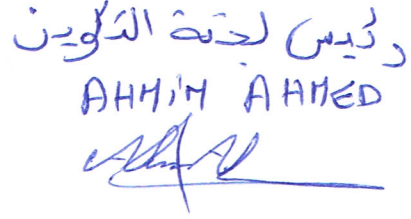 رئيس لجنة التكوين
AHMIM AHMED